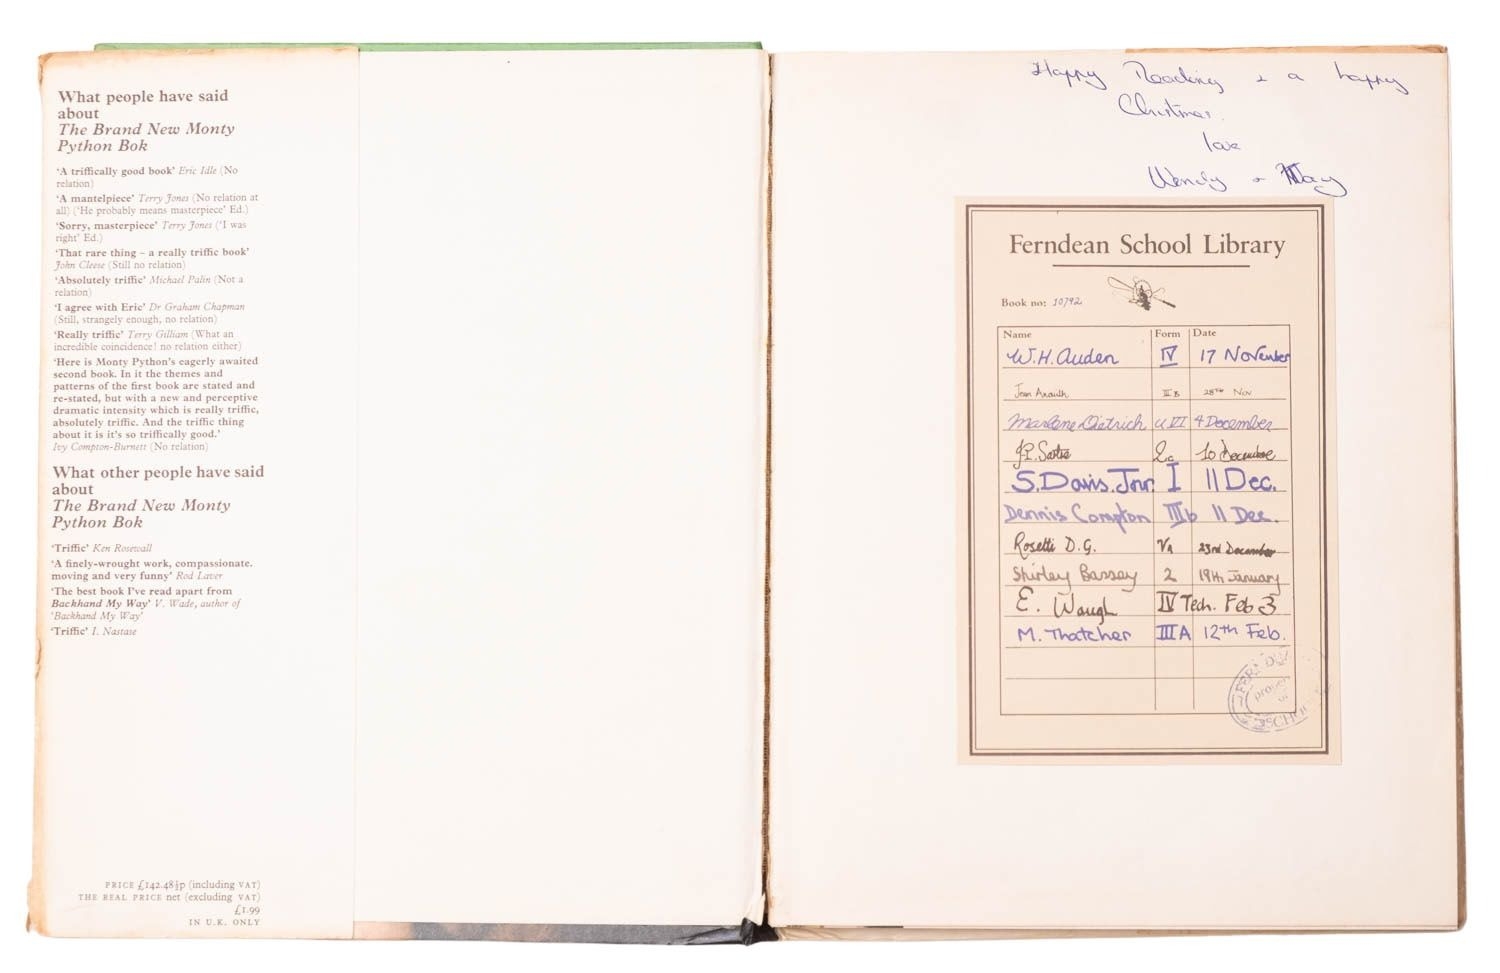 What people have said
about
The Brand New Monty
Python Bok
‘A triffically good book’ Eric Idle (No
relation)
‘A mantelpiece’ Terry Jones (No relation at
all) (‘He probably means masterpiece’ Ed.)
‘Sorry, masterpiece’ Terry Jones (‘I was
right’ Ed.)
‘That rare thing – a really triffic book’
John Cleese (Still no relation)
‘Absolutely triffic’ Michael Palin (Not a
relation)
‘I agree with Eric’ Dr Graham Chapman
(Still, strangely enough, no relation)
‘Really triffic’ Terry Gilliam (What an
incredible coincidence! no relation either)
‘Here is Monty Python's eagerly awaited
second book. In it the themes and
patterns of the first book are stated and
re-stated, but with a new and perceptive
dramatic intensity which is really triffic,
absolutely triffic. And the triffic thing
about it is it's so triffically good.’
Ivy Compton-Burnett (No relation)
What other people have said
about
The Brand New Monty
Python Bok
‘Triffic’ Ken Rosewall
‘A finely-wrought work, compassionate.
moving and very funny’ Rod Laver
‘The best book I've read apart from
Backhand My Way’ V. Wade, author of
‘Backhand My Way’
‘Triffic’ I. Nastase
PRICE £142.48½p (including VAT)
THE REAL PRICE net (excluding VAT)
£1.99
IN U.K. ONLY
Happy Reading & a happy
Christmas.
love
Wendy &
Ferndean School Library
Book no: 10792
Name Form Date
W.H. Auden IV 17 November
Jean Anouilh III B 28TH Nov
Marlene Dietrich U VI 4 December
J.P. Sartre 2c 10 decembre
S. Davis. Jnr. I 11 Dec.
Dennis Compton IIIb 11 Dec.
Rosetti D.G. Va 23rd December
Shirley Bassey 2 19th January
E. Waugh IV Tech. Feb 3
M. Thatcher III A 12th Feb.
property
of